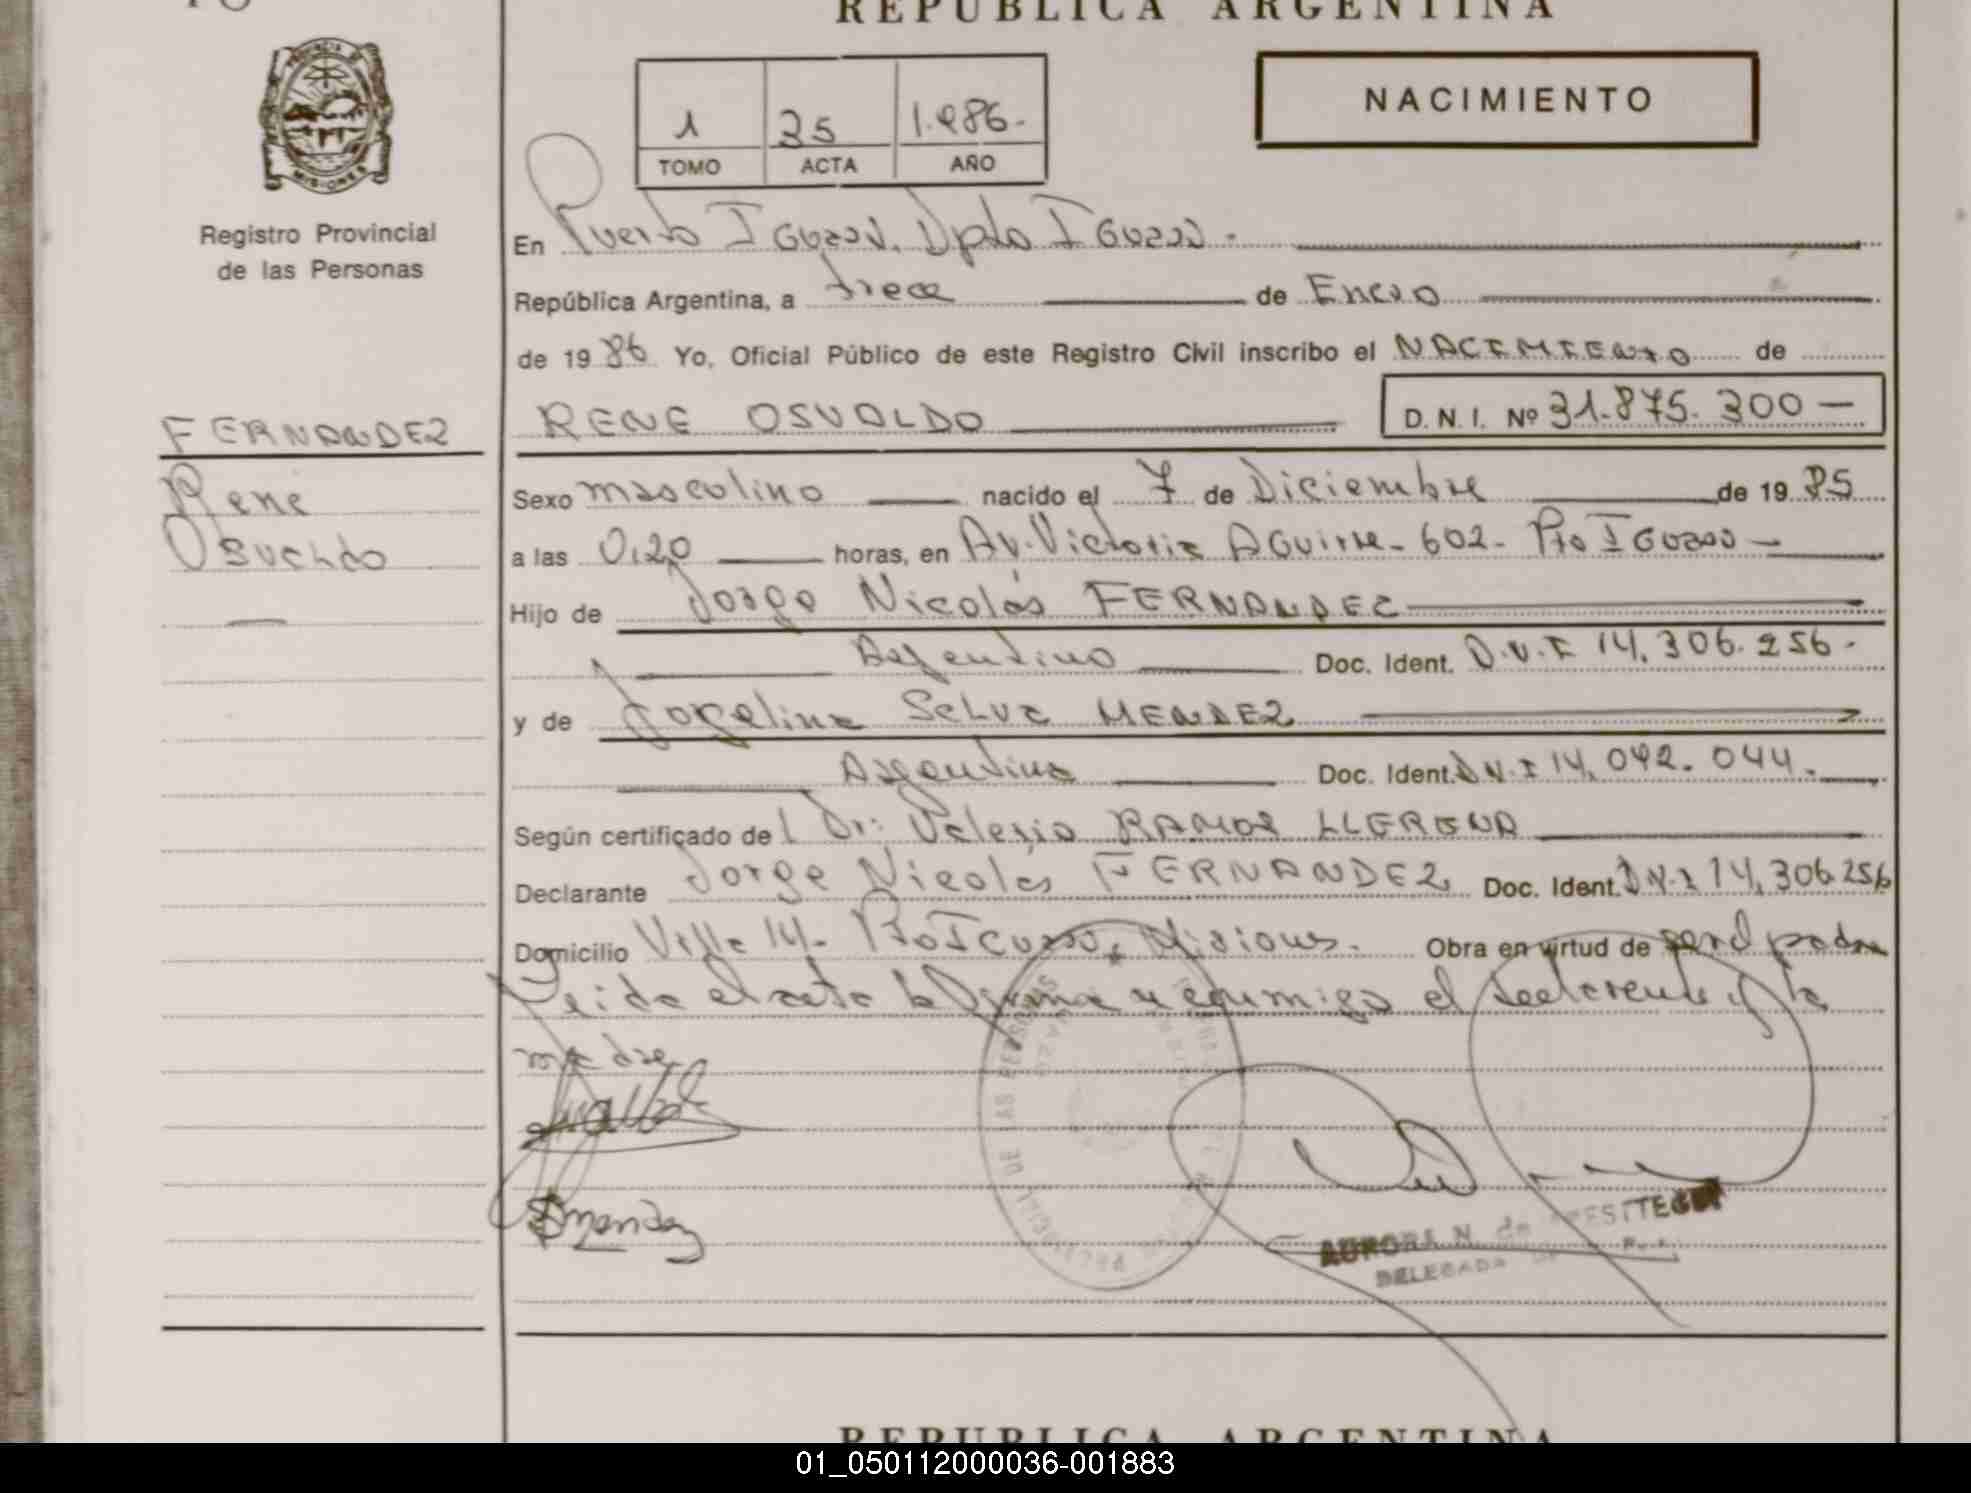 REPUBLICA ARGENTINA
PROVINCIA DE
MISIONES
Registro Provincial
de las Personas
1 35 1.986.-
TOMO ACTA AÑO
NACIMIENTO
En Puerto Iguazú, Dpto Iguazú.-
República Argentina, a trece de Enero
de 1986 Yo, Oficial Público de este Registro Civil inscribo el NACIMIENTO de
FERNANDEZ
Rene
Osvaldo
RENE OSVALDO D.N.I. Nº 31.875.300—
Sexo masculino nacido el 7 de Diciembre de 1985
a las 0,20 horas, en Av. Victoria Aguirre - 602 - Pto Iguazú
Hijo de Jorge Nicolás FERNANDEZ
Argentino Doc. Ident. D.N.I 14.306.256.-
y de Jorgelina Selva MENDEZ
Argentina Doc. Ident. D.N.I 14.042.044.
Según certificado del Dr: Valerio RAMOS LLERENA
Declarante Jorge Nicolás FERNANDEZ Doc. Ident. D.N.I 14.306.256
Domicilio Villa 14 - Pto Iguazú, Misiones. Obra en virtud de ser el padre
Leida el acta la firman conmigo el declarante y la
madre
AURORA N. de
DELEGADA
REPUBLICA ARGENTINA
01_050112000036-001883